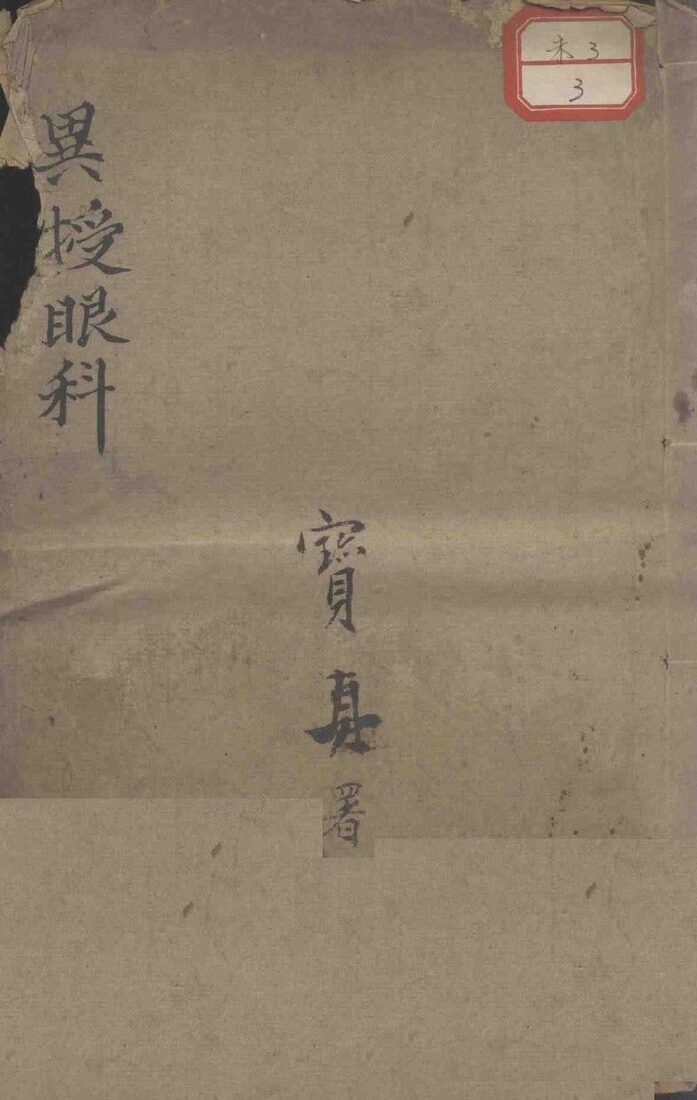 未3
3
異授眼科
寶真署